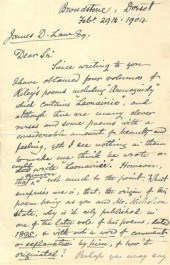 Broadstone, Dorset
Feby. 29th. 1904
James D. Law Esq.
Dear Sir
Since writing to you
I have obtained four volumes of
Riley's poems including "Armazindy"
which contains "Leonainie", and
although there are many clever
verses and some poems with a
considerable amount of beauty and
feeling, yet I see nothing in them
to make me think he wrote or
could write "Leonainie". However,
that is not much to the point. What
surprises me is, that the origin of this
poem being as you and Mr. Nicholson
state, why is it only published in
one of the later vols. of his poems, dated
, &
without a word of comment
or explanation by him, of how it
originated? Perhaps you may say